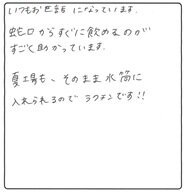 いつもお世話になっています。
蛇口からすぐに飲めるのが
すごく助かっています。
夏場も、そのまま水筒に
入れられるのでラクチンです!!